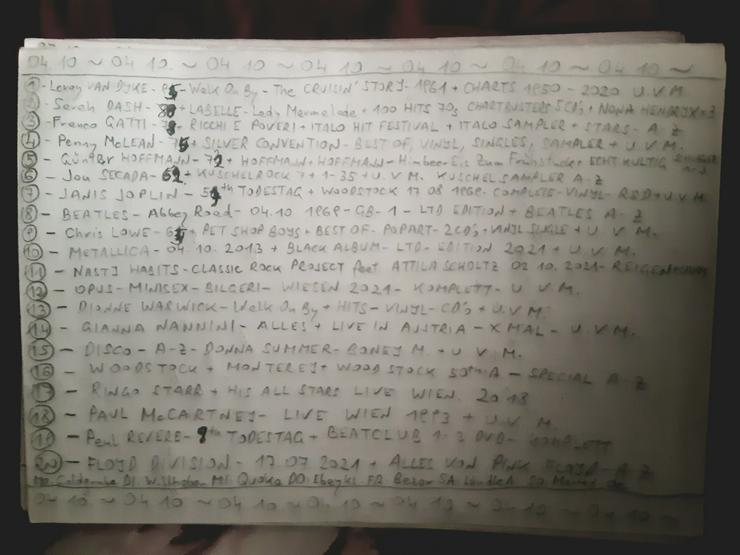 04 10 ~ 04 10 ~ 04 10 ~ 04 10 ~ 04 10 ~ 04 10 ~ 04 10 ~
1 - Leroy VAN DYKE - Walk On By - The CRUISIN' STORY - 1961 + CHARTS 1950 - 2020 U.V.M
2 Sarah DASH - + LABELLE - Lady Marmelade + 100 HITS 70s CHARTBUSTERS 5CD's + NONA HENDRYX
3 - Franco GATTI - + RICCHI E POVERI + ITALO HIT FESTIVAL + ITALO SAMPLER + STARS - A-Z
4 - Penny McLEAN - + SILVER CONVENTION - BEST OF, VINYL, SINGLES, SAMPLER + U.V.M.
5 - Günther HOFFMANN - + HOFFMANN + HOFFMANN - Himbeereis Zum Frühstück + ECHT KULTIG
6 - Jon SECADA - + KUSCHELROCK 7 + 1-35 + U.V.M. KUSCHELSAMPLER A-Z
7 - JANIS JOPLIN - th TODESTAG + WOODSTOCK 17 08 1969 - COMPLETE - VINYL - RSD + U.V.M
8 - BEATLES - Abbey Road - 04.10 1969 - GB - 1 - LTD EDITION + BEATLES A-Z
9 - Chris LOWE - + PET SHOP BOYS + BEST OF - POPART - 2CD's + VINYL SINGLE + U.V.M.
10 - METALLICA - 04.10.2013 + BLACK ALBUM - LTD - EDITION 2021 + U.V.M.
11 - NASTY HABITS - CLASSIC ROCK PROJECT feat. ATTILA SCHOLTZ 02 10. 2021 -
12 - OPUS - MINISEX - BILGERI - WIESEN 2021 - KOMPLETT - U.V.M.
13 - DIONNE WARWICK - Walk On By + HITS - VINYL - CD's + U.V.M.
14 - GIANNA NANNINI - ALLES + LIVE IN AUSTRIA - X MAL - U.V.M.
15 - DISCO - A-Z - DONNA SUMMER - BONEY M. + U.V.M.
16 - WOODSTOCK + MONTEREY + WOODSTOCK 50th A - SPECIAL A-Z
17 - RINGO STARR + HIS ALL STARS LIVE WIEN. 2018
18 - PAUL McCARTNEY - LIVE WIEN 1993 + U.V.M
19 - Paul REVERE - th TODESTAG + BEATCLUB 1-3 DVD - KOMPLETT
20 - FLOYD DIVISION - 17.07 2021 + ALLES VON PINK FLOYD - A-Z
DI MI DO FR SA SO
04 10 ~ 04 10 ~ 04 10 ~ 04 10 ~ 04 10 ~ 04 10 ~ 04 10 ~